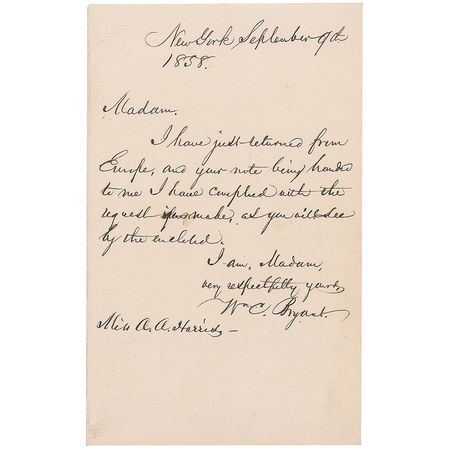 New York, September 9th
1858.
Madam.
I have just returned from
Europe, and your note being handed
to me I have complied with the
request you make, as you will see
by the enclosed.
I am, Madam,
very respectfully yours,
Wm C. Bryant.
Miss A. A. Harris—